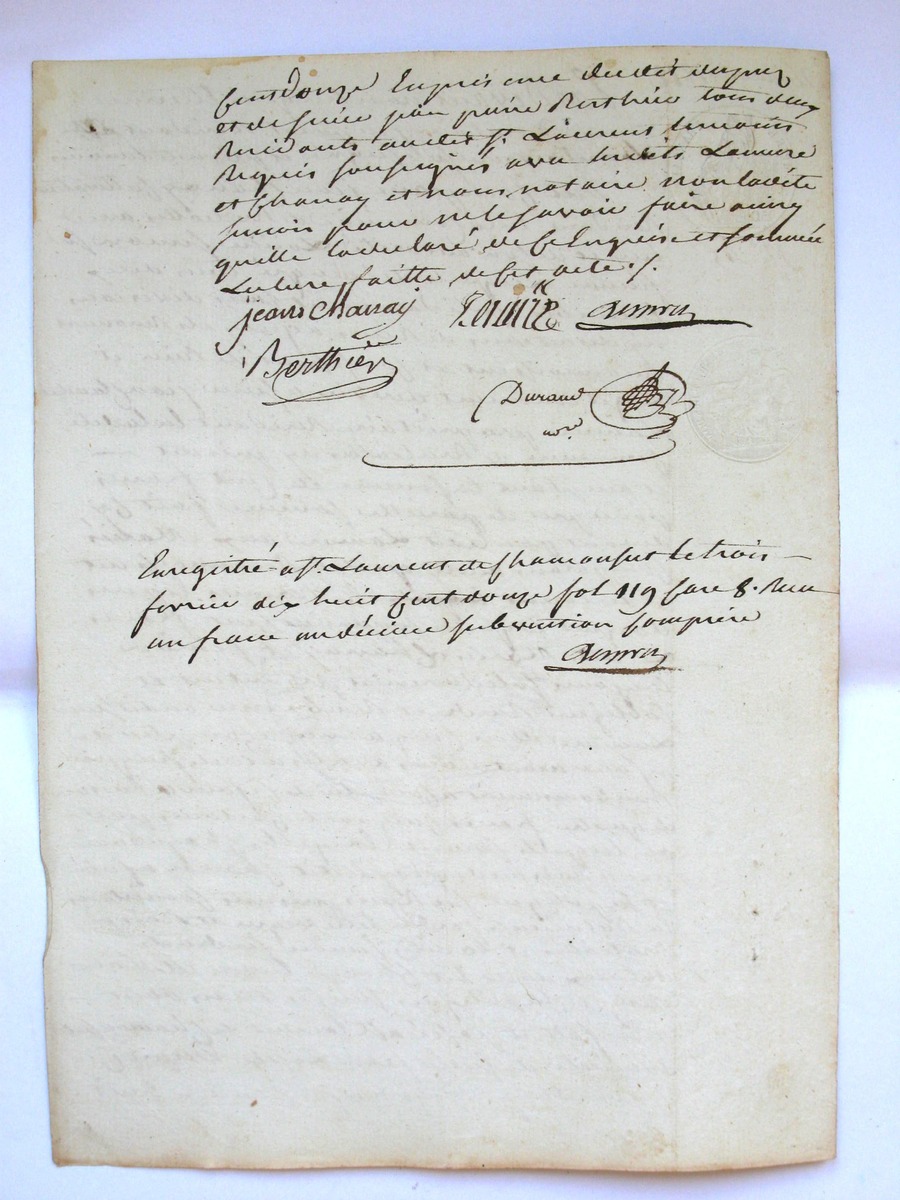 cent douze En présence
et de sieur jean pierre Berthier tous deux
Residants audit St. Laurent temoins
Requis soussignés avec lesdits Lemaire
et Chanay et nous notaire non ladite
pour ne le savoir faire ainsy
quelle la declaré de ce Enquise et sommée
Lecture faitte de cet acte ./.
jean Chanay
Berthier
Durand
nore
Enregistré a St. Laurent de Chamousset le trois
fevrier dix huit cent douze fol 119 Case 8. Reçu
un franc un décime subvention Comprise